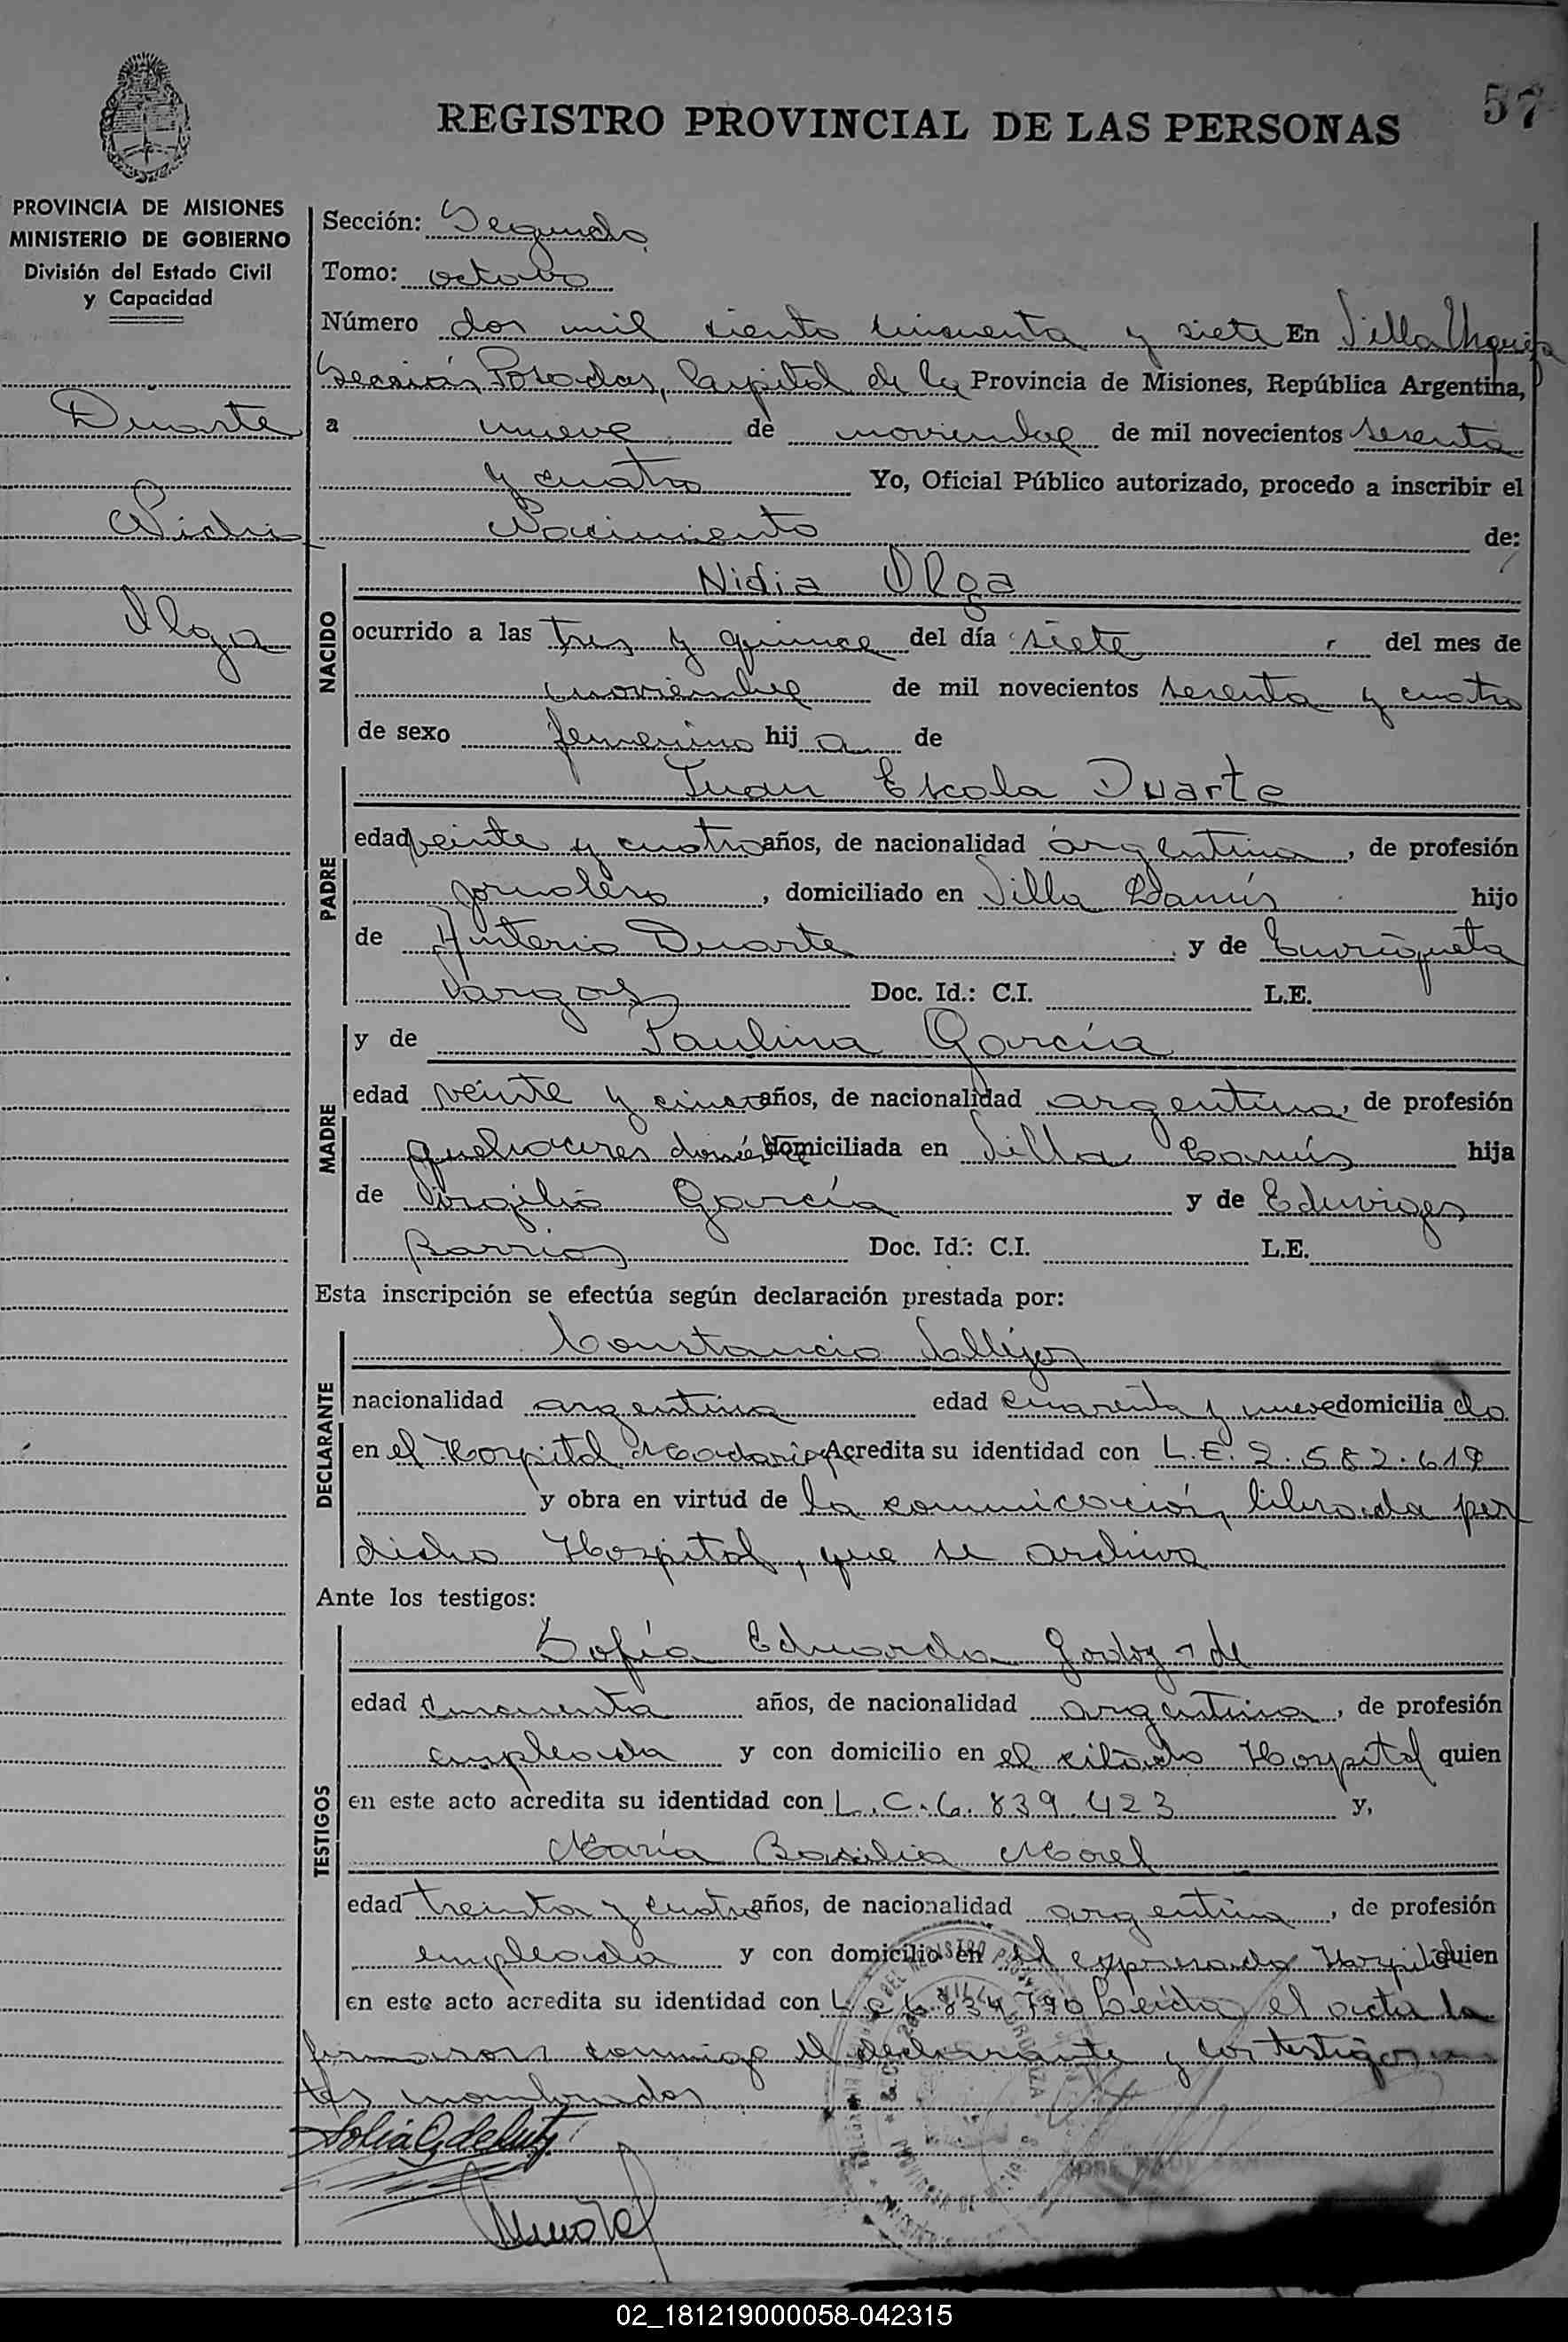 57
REGISTRO PROVINCIAL DE LAS PERSONAS
PROVINCIA DE MISIONES
MINISTERIO DE GOBIERNO
División del Estado Civil
y Capacidad
Duarte
Nidia
Olga
Sección: Segunda
Tomo: octavo
Número dos mil ciento cincuenta y siete En Villa Urquiza
Sección, Posadas, Capital de la Provincia de Misiones, República Argentina,
a nueve de noviembre de mil novecientos sesenta
y cuatro Yo, Oficial Público autorizado, procedo a inscribir el
Nacimiento de:
NACIDO
Nidia Olga
ocurrido a las tres y quince del día siete del mes de
noviembre de mil novecientos sesenta y cuatro
de sexo femenino hija de
PADRE
Juan Escola Duarte
edad veinte y cuatro años, de nacionalidad argentina, de profesión
jornalero, domiciliado en Villa Lanús hijo
de Antonio Duarte y de Enriqueta
Vargas Doc. Id.: C.I. L.E.
MADRE
y de Paulina García
edad veinte y cinco años, de nacionalidad argentina, de profesión
quehaceres domiciliada en Villa Lanús hija
de Virgilio García y de Eduviges
Barrios Doc. Id.: C.I. L.E.
Esta inscripción se efectúa según declaración prestada por:
DECLARANTE
Constancio
nacionalidad argentina edad cuarenta y nueve domiciliado
en el Hospital Madariaga Acredita su identidad con L.E. 2.582.619
y obra en virtud de la comunicación librada por
dicho Hospital, que se archiva
Ante los testigos:
TESTIGOS
Sofía Eduarda Godoy de
edad cincuenta años, de nacionalidad argentina, de profesión
empleada y con domicilio en el citado Hospital quien
en este acto acredita su identidad con L.C. 6.839.423 y,
María Basilia Morel
edad treinta y cuatro años, de nacionalidad argentina, de profesión
empleada y con domicilio en el expresado Hospital quien
en este acto acredita su identidad con L.C. 6.834.790 Leída el acta la
firmaron conmigo el declarante y los testigos
nombrados
02_181219000058-042315